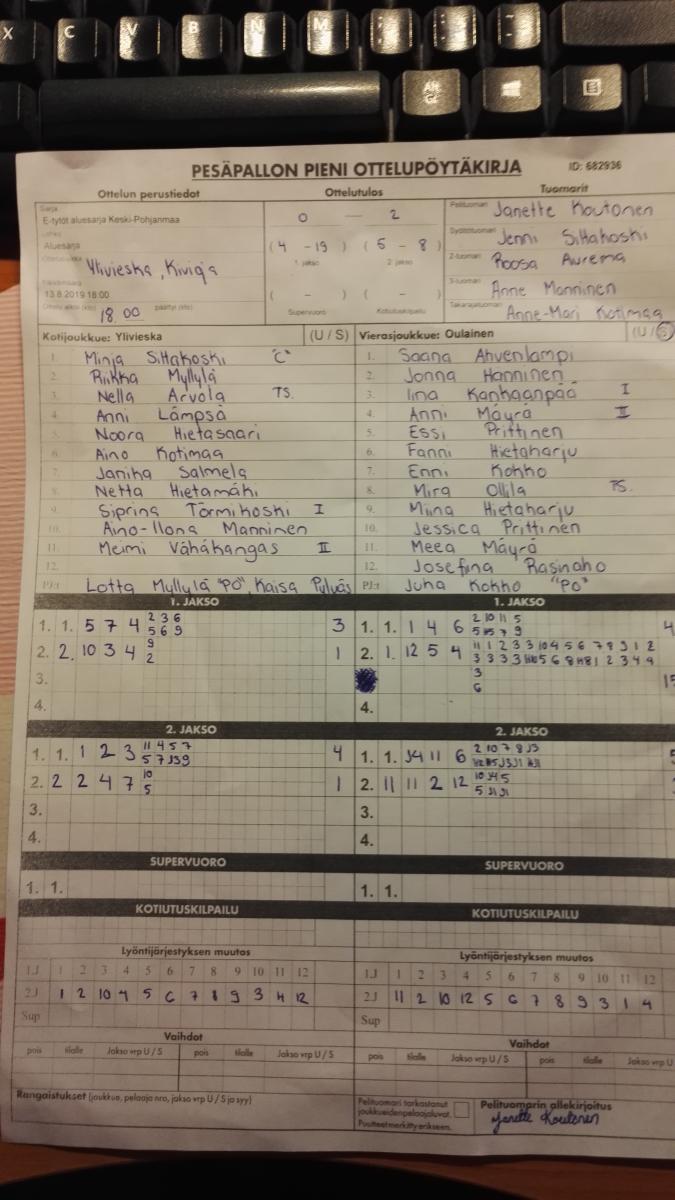 X C V B N M ; : -
Alt Gr
PESÄPALLON PIENI OTTELUPÖYTÄKIRJA ID: 682936
Ottelun perustiedot Ottelutulos Tuomarit
Sarja
E-tytöt aluesarja Keski-Pohjanmaa
Lohko
Aluesarja
Ottelupaikka Ylivieska, Kivioja
Päivämäärä
13.8.2019 18:00
Ottelu alkoi (klo) 18 00 päättyi (klo)
0 — 2
( 4 - 19 ) ( 5 - 8 )
1. jakso 2. jakso
( - ) ( - )
Supervuoro Kotiutuskilpailu
Pelituomari Janette Koutonen
Syöttötuomari Jenni Siltakoski
2-tuomari Roosa Aurema
3-tuomari Anne Manninen
Takarajatuomari Anne-Mari Kotimaa
Kotijoukkue: Ylivieska (U / S) Vierasjoukkue: Oulainen (U / S)
1. Minja Siltakoski "C" 1. Saana Ahvenlampi
2. Riikka Myllylä 2. Jonna Hänninen
3. Nella Arvola TS. 3. Iina Kankaanpää I
4. Anni Lämpsä 4. Anni Mäyrä II
5. Noora Hietasaari 5. Essi Prittinen
6. Aino Kotimaa 6. Fanni Hietaharju
7. Janika Salmela 7. Enni Kokko
8. Netta Hietamäki 8. Mira Ollila TS.
9. Siprina Törmikoski I 9. Miina Hietaharju
10. Aino-Ilona Manninen 10. Jessica Prittinen
11. Meimi Vähäkangas II 11. Meea Mäyrä
12. 12. Josefina Rasinaho
PJ:t Lotta Myllylä "PO", Kaisa Pylväs PJ:t Juha Kokko "PO"
1. JAKSO 1. JAKSO
1. 1. 5 7 4 2 3 6 3 1. 1. 1 4 6 2 10 11 5 4
5 6 9
2. 2. 10 3 4 9 1 2. 1. 12 5 4 11 1 2 3 3 10 4 5 6 7 8 9 1 2
2
3. 3
6
4. 4.
2. JAKSO 2. JAKSO
1. 1. 1 2 3 11 4 5 7 4 1. 1. 11 6 2 10 7 8
2. 2 2 4 7 10 1 2. 11 11 2 12
5
3. 3.
4. 4.
SUPERVUORO SUPERVUORO
1. 1. 1. 1.
KOTIUTUSKILPAILU KOTIUTUSKILPAILU
Lyöntijärjestyksen muutos Lyöntijärjestyksen muutos
1.J 1 2 3 4 5 6 7 8 9 10 11 12 1.J 1 2 3 4 5 6 7 8 9 10 11 12
2.J 1 2 10 4 5 6 7 8 9 3 11 12 2.J 11 2 10 12 5 6 7 8 9 3 1 4
Sup Sup
Vaihdot Vaihdot
pois tilalle Jakso vrp U / S pois tilalle Jakso vrp U / S pois tilalle Jakso vrp U / S pois tilalle Jakso vrp U
Rangaistukset (joukkue, pelaaja nro, jakso vrp U / S ja syy)
Pelituomari tarkastanut
joukkueiden pelaajaluvat.
Puutteet merkitty erikseen.
Pelituomarin allekirjoitus
Janette Koutonen